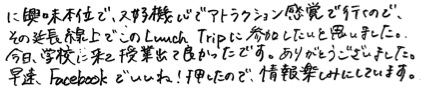 に興味本位で、好奇心でアトラクション感覚で行くので、
その延長線上でこのLunch Tripに参加したいと思いました。
今日、学校に来て授業出て良かったです。ありがとうございました。
早速、Facebookでいいね!押したので、情報楽しみにしています。